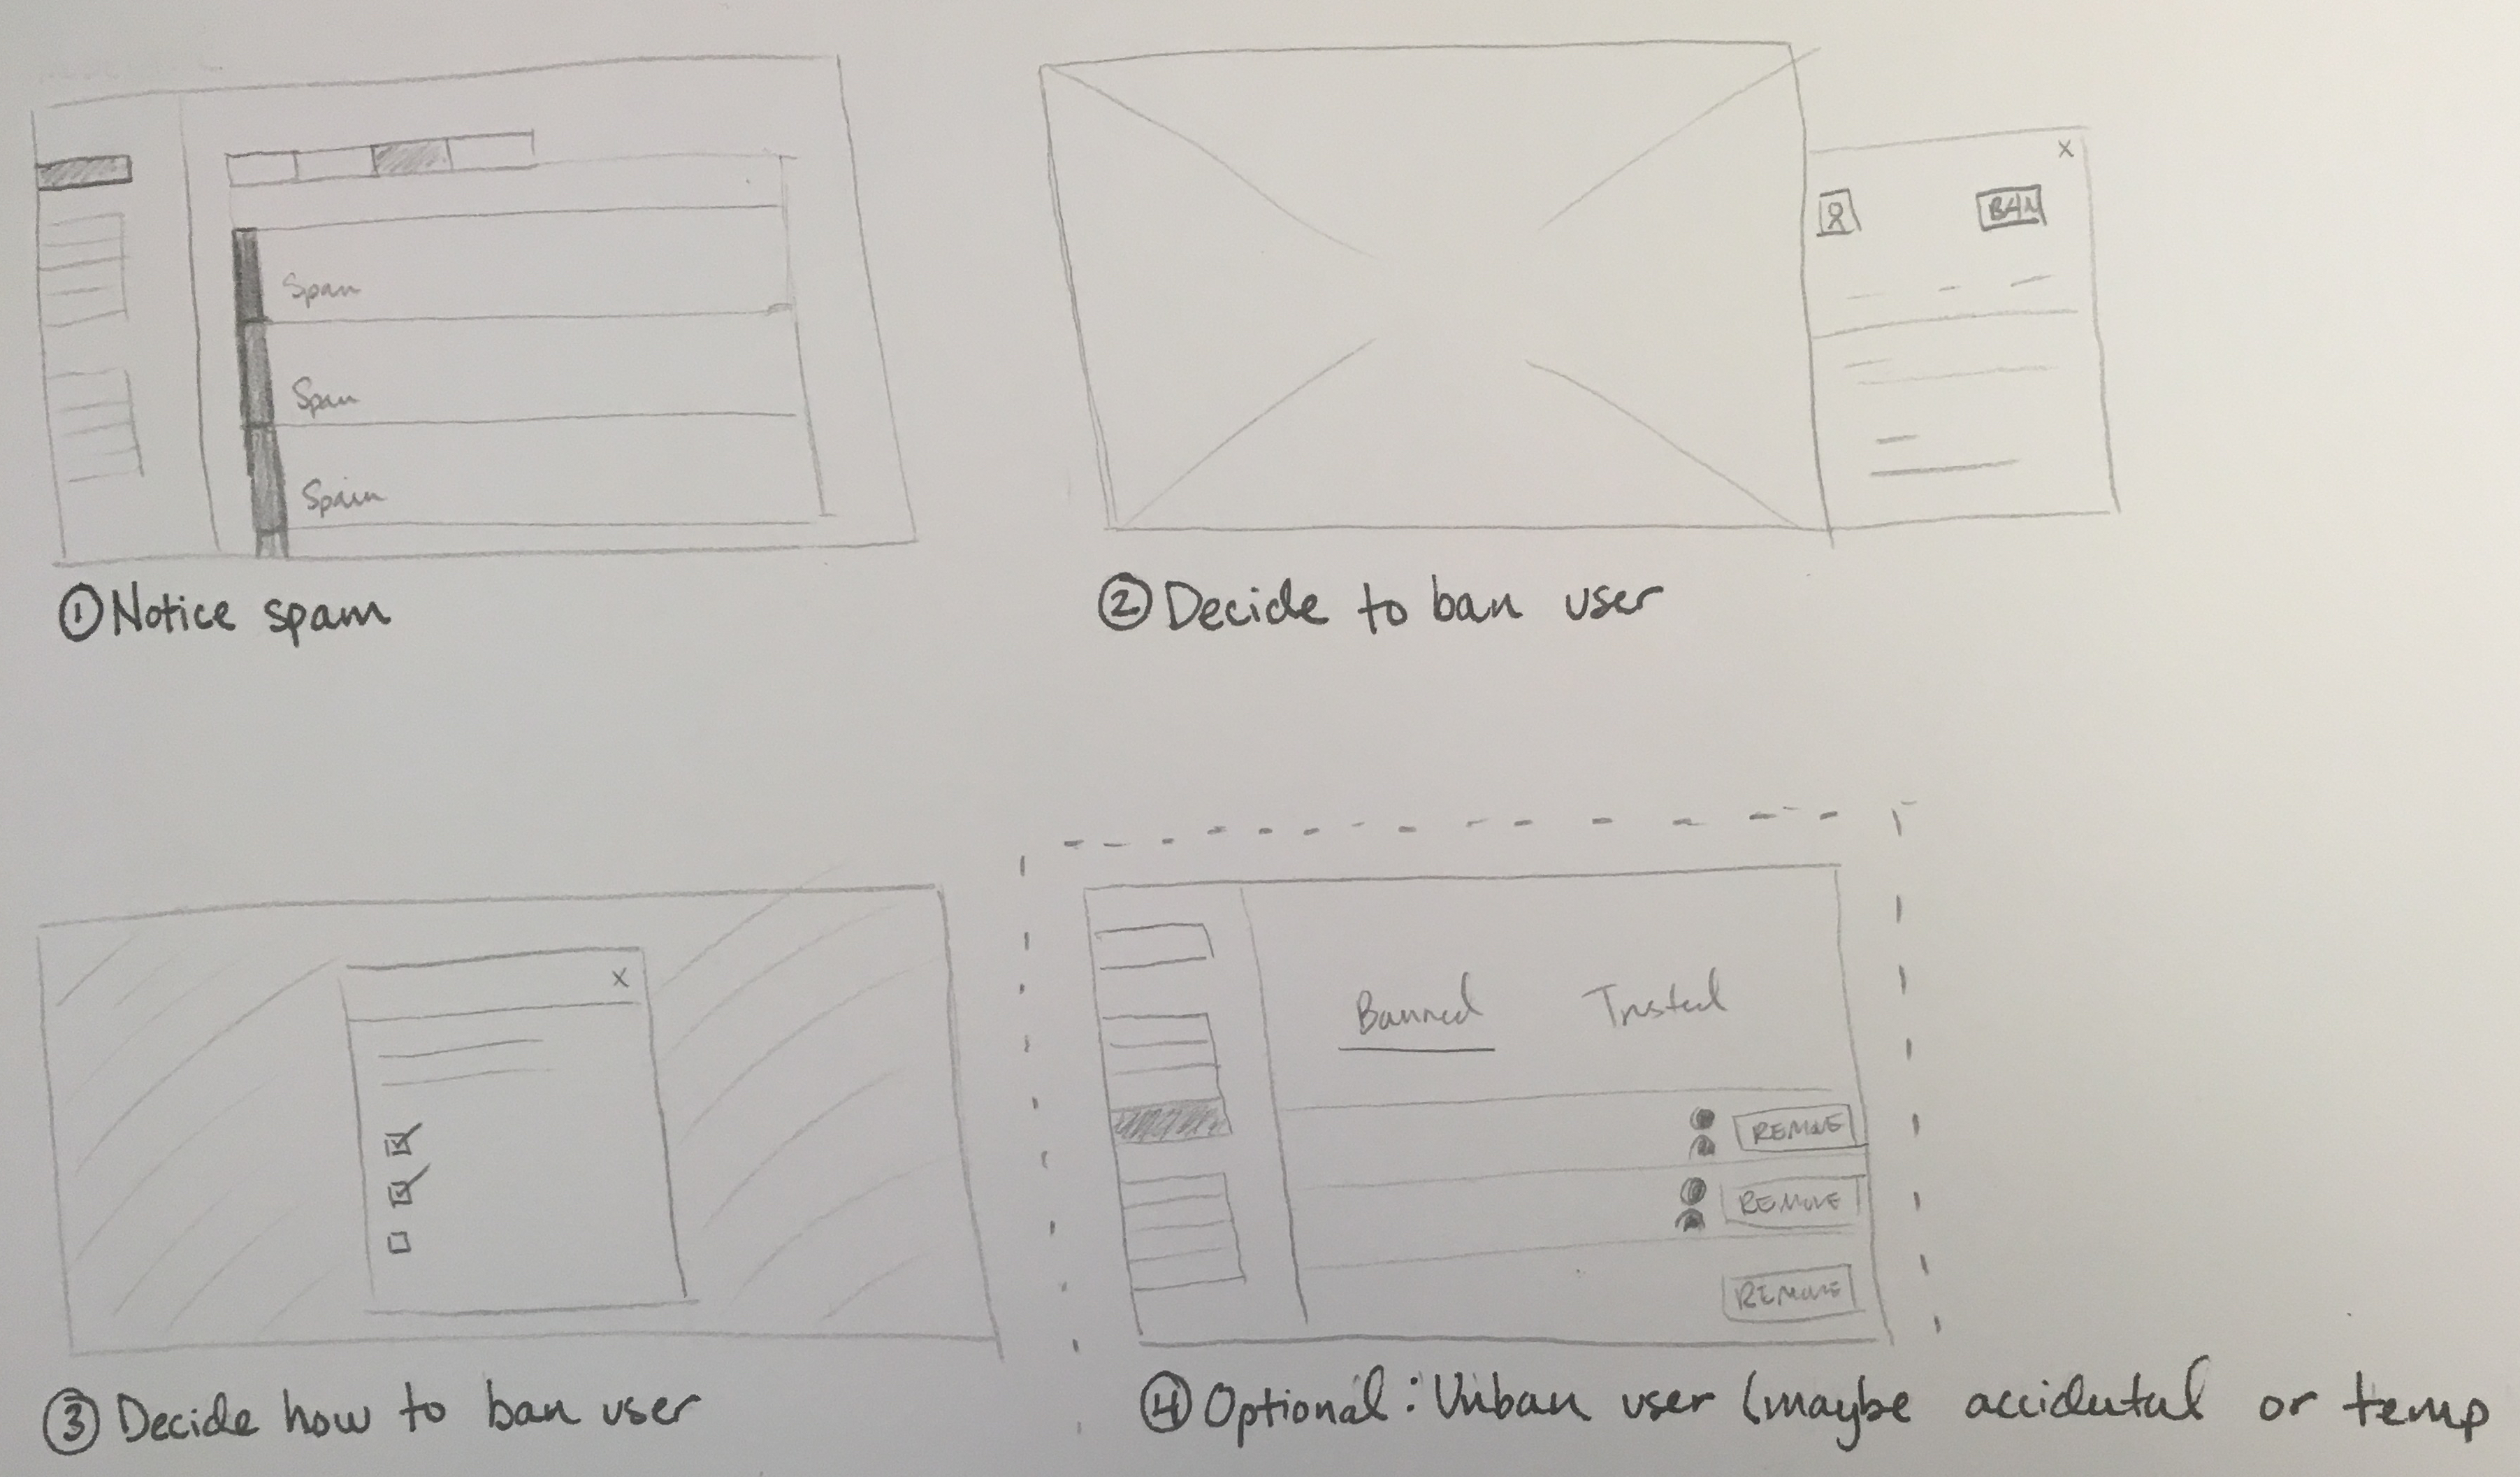 Spam
Spam
Spam
① Notice spam
X
BAN
② Decide to ban user
X
③ Decide how to ban user
Banned Trusted
REMOVE
REMOVE
REMOVE
④ Optional: Unban user (maybe accidental or temp